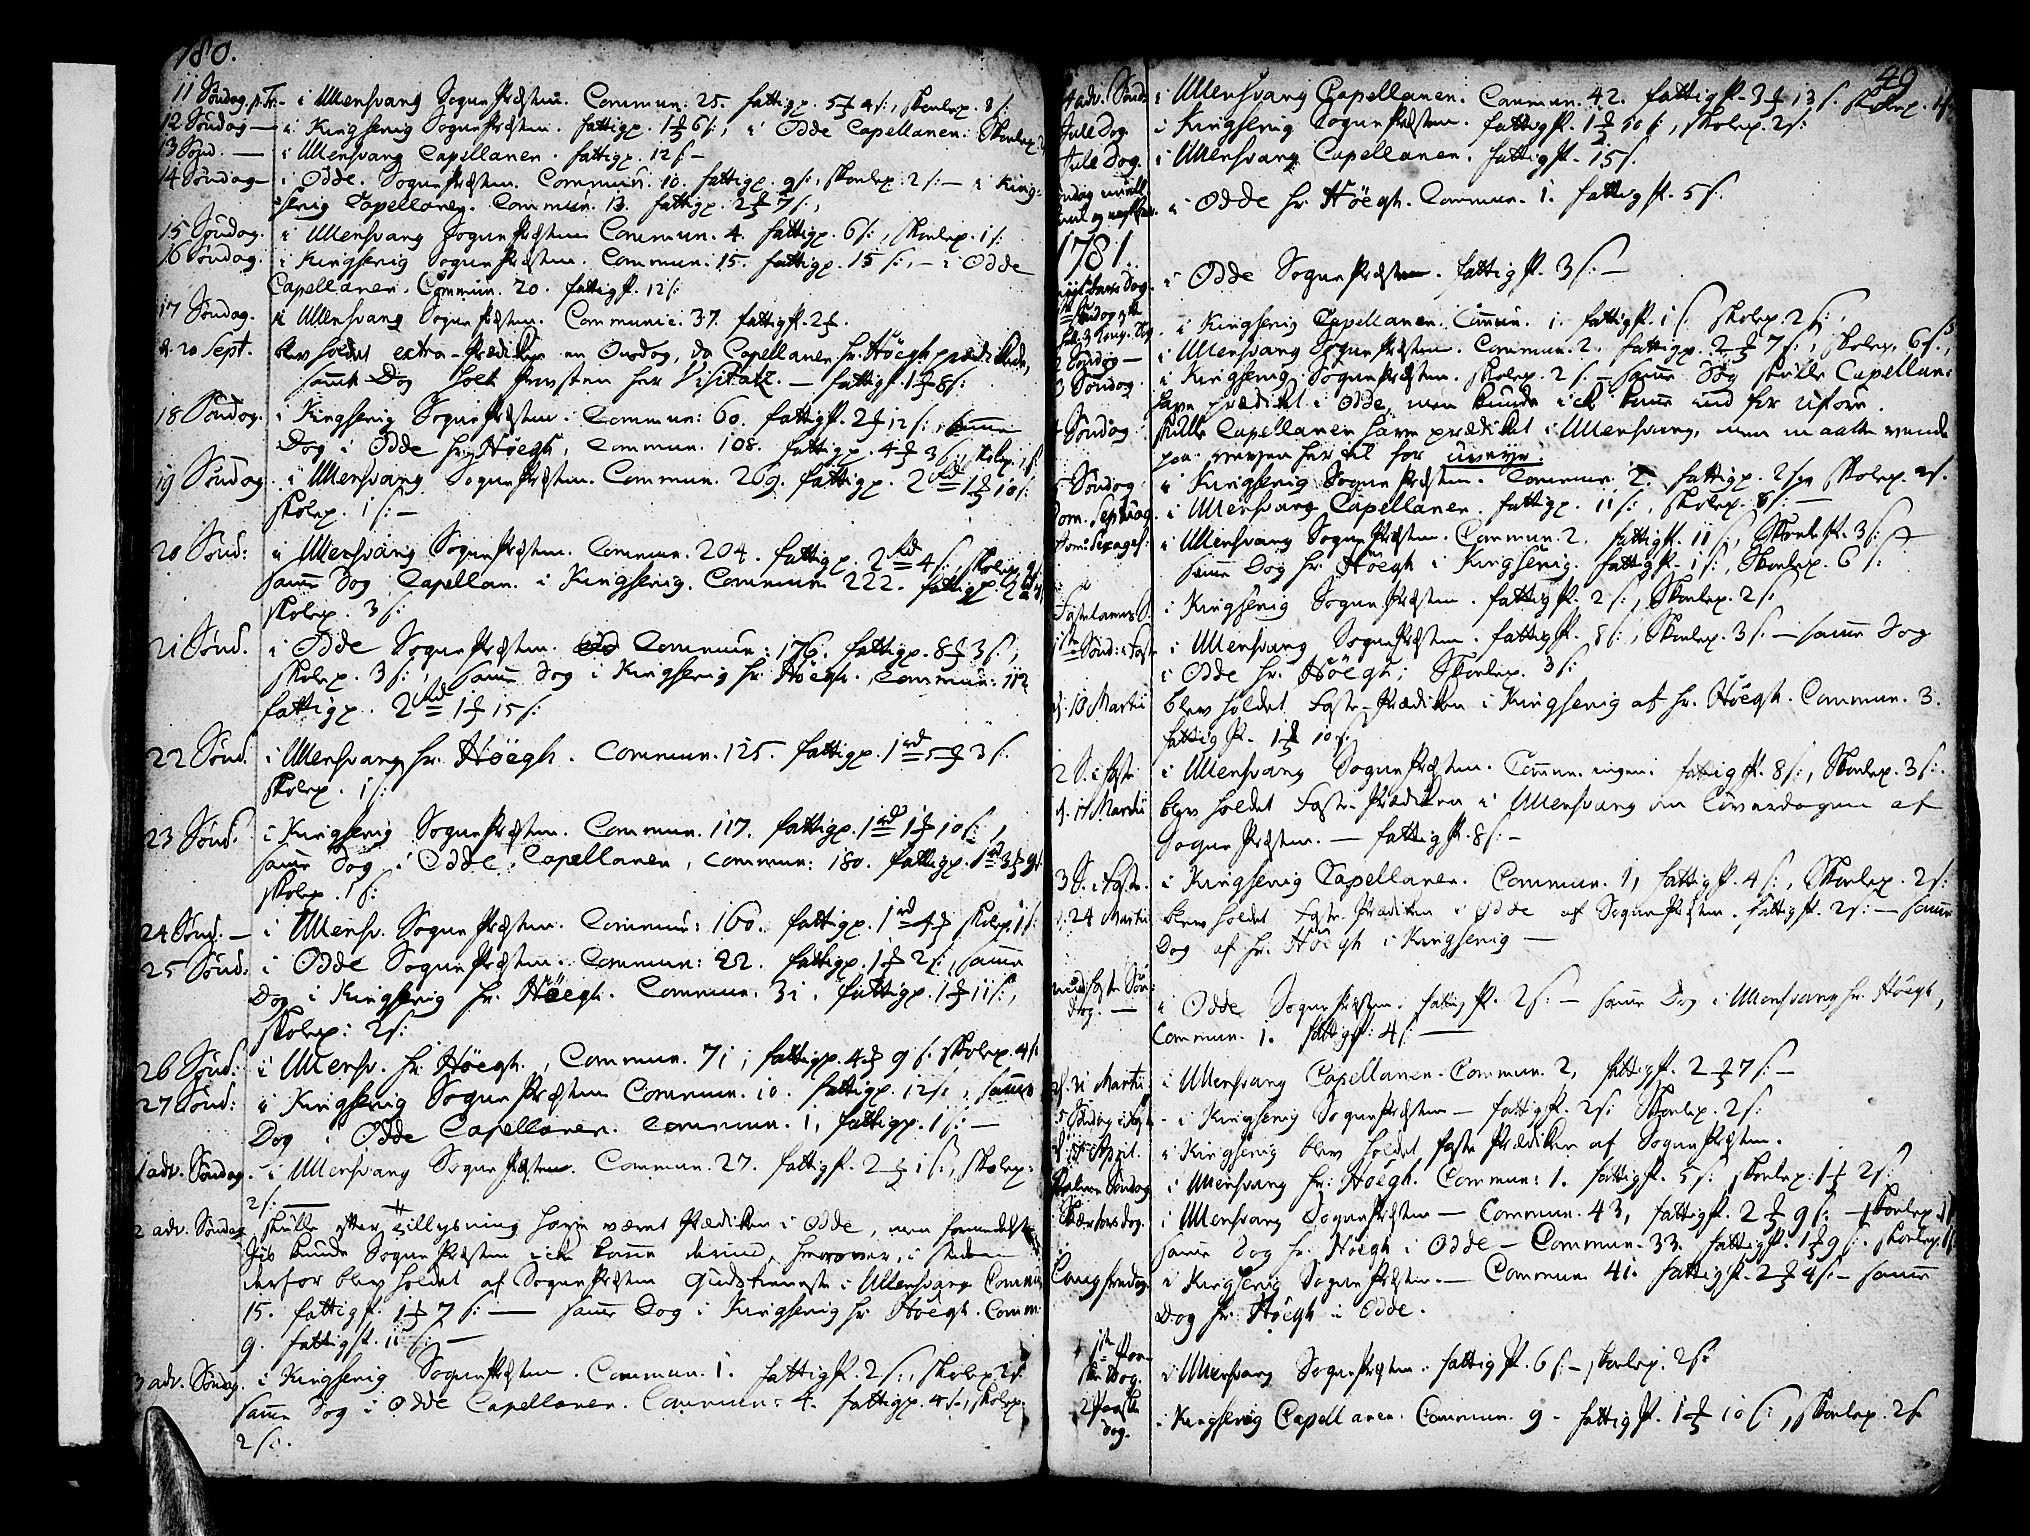 1780.
11 Søndag p. Tr. – i Ullensvang Sogne Præsten. Commun: 25. fattigp. 5 ℔ 4 s:, Skolep. 8 s:
12 Søndag – i Kingservig Sogne Præsten. fattigp. 1 ℔ 6 s:, i Odde Capellanen. Skolep.
13 Sønd. – i Ullensvang Capellanen. fattigp. 12 s –
14 Søndag – i Odde. Sogne Præsten. Commun. 10. fattigp. 9 s:, Skolep: 2 s: – i King-
servig Capellanen. Commun. 13. fattigp. 2 ℔ 7 s:,
15 Søndag. i Ullensvang Sogne Præsten Commun. 4. fattigp. 6 s:, Skolep. 1 s:
16 Søndag. i Kingservig Sogne Præsten. Commun: 15. fattigp. 15 s:, – i Odde
Capellanen. Commun. 20. fattig P. 12 s:
17 Søndag. i Ullensvang Sogne Præsten. Communic. 37. fattig P. 2 ℔.
d. 20 Sept. blev holdet extra-Prædiken en Onsdag, da Capellanen hr. Höegh prædikede,
samme Dag holt Provsten her Visitatz. – fattigp. 1 ℔ 8 s:
18 Søndag. i Kingservig Sogne Præsten. Commun: 60. fattig P. 2 ℔ 12 s: samme
Dag i Odde hr. Höegh, Commun. 108. fattigp. 4 ℔ 3 s:, Skolep. 1 s:
19 Søndag. i Ullensvang Sogne Præsten. Commun. 269. fattigp. 2 rd 1 ℔ 10 s:
Skolep. 1 s: –
20 Sønd: i Ullensvang Sogne Præsten. Commun. 204. fattigp. 2 rd 4 s:, Skolep.
samme Dag Capellan. i Kingservig. Commun. 222. fattigp. 2
Skolep. 3 s:
21 Sønd. i Odde Sogne Præsten. Commun: 176. fattigp. 8 ℔ 3 s:,
Skolep. 3 s:, samme Dag i Kingservig hr. Höegh., Commun: 112
fattigp. 2 rd 1 ℔ 15 s:
22 Sønd. i Ullensvang hr. Höegh. Commun. 125. fattigp. 1 rd 5 ℔ 3 s:
Skolep. 1 s:
23 Sønd. i Kingservig Sogne Præsten. Commun. 117. fattigp. 1 rd 1 ℔ 10 s:
samme Dag i Odde Capellanen, Commun: 180. fattigp. 1 rd 3 ℔ 9 s:
Skolep. 1 s:
24 Sønd. – i Ullensv. Sogne Præsten. Commun: 160. fattigp. 1 rd 4 ℔ Skolep. 1 s:
25 Sønd: i Odde Sogne Præsten. Commun: 22. fattigp. 1 ℔ 2 s:, samme
Dag i Kingservig hr. Höegh. Commun. 31. fattigp. 1 ℔ 11 s:,
Skolep: 2 s:
26 Sønd: i Ullensv. hr. Höegh., Commun. 71, fattigp. 4 ℔ 9 s. Skolep. 4 s:
27 Sønd: i Kingservig Sogne Præsten Commun. 10. fattigp. 12 s:, samme
Dag i Odde Capellanen. Commun. 1, fattigp. 1 s: –
1 adv. Søndag. i Ullensvang Sogne Præsten. Commun. 27. fattig P. 2 ℔ 1 s:, Skolep:
2 s: –
2 adv. Søndag skulle efter tillysning have været Prædiken i Odde, men formedelst
Iis kunde Sogne Præsten icke komme derind, i steden
derfor blev holdet af Sogne Præsten Gudstieneste i Ullensvang Commun
15. fattig P. 1 ℔ 7 s: – samme Dag i Kingservig hr. Höegh. Commun
9. fattig P. 11 s: –
3 adv. Søndag. i Kingservig Sogne Præsten. Commun. 1. fattig P. 2 s:, Skolep. 2 s:
samme Dag i Odde Capellanen. Commun: 4. fattigp. 4 s:, Skolep.
2 s:.
49
4 adv. Sønd. i Ullensvang Capellanen. Commun. 42. fattig P. 3 ℔ 13 s. Skolep. 1 s:
Jule Dag. i Kingservig Sogne Præsten. fattig P. 1 ℔ 10 s:, Skolep. 2 s:
2 Jule Dag. i Ullensvang Capellanen. fattig P. 15 s.
Søndag imell. Juul og nyt Aar. i Odde hr. Höegh. Commun. 1. fattig P. 5 s.
1781.
Nyt Aars Dag. i Odde Sogne Præsten. fattig P. 3 s: –
i Kingservig Capellanen. Commun. 1. fattig P. 1 s. Skolep. 2 s:,
2 Søndag – i Ullensvang Sogne Præsten. Commun. 2. fattigp. 2 ℔ 7 s:, Skolep. 6 s:,
3 Søndag. i Kingservig Sogne Præsten. Skolep. 2 s. – samme Dag skulle Capellan:
have prædiket i Odde, men kunde ick komme ind for Uføre.
4 Søndag skulle Capellanen have prædiket i Ullensvang, men maatte vende
paa reysen her til for uveyr.
5 Søndag i Kingservig Sogne Præsten. Commun. 2. fattigp. 2 s:, Skolep. 2 s.
Dom. Septuag. i Ullensvang Capellanen. fattigp. 11 s:, Skolep. 8 s: –
Dom: Sexages: i Ullensvang Sogne Præsten. Commun. 2. fattig P. 11 s:, Skole P. 3 s: –
samme Dag hr. Höegh i Kingservig. fattig P. 1 s:, Skolep. 6 s:
Fastelavns S. i Kingservig Sogne Præsten. fattig P. 2 s:, Skolep. 2 s:
1ste Sønd: i Faste i Ullensvang Sogne Præsten. fattig P. 8 s:, Skolep. 3 s. – samme Dag
i Odde hr. Höegh; Skolep. 3 s:
d. 10 Martii blev holdet Faste-Prædiken i Kingservig af hr. Höegh. Commun. 3.
fattig P. 1 ℔ 10 s:
2 S. i Faste i Ullensvang Sogne Præsten. Commun. ingen. fattig P. 8 s:, Skolep. 3 s:.
d. 17 Martii blev holdet Faste-Prædiken i Ullensvang om Löverdagen af
Sogne Præsten. – fattig P. 8 s: –
3 S. i Faste. i Kingservig Capellanen. Commun. 1, fattig P. 4 s:, Skolep. 2 s:
d. 24 Martii blev holdet Faste Prædiken i Odde af Sogne Præsten. fattig P. 2 s: – samme
Dag af hr. Höegh i Kingservig –
Midfaste Søn-
dag. – i Odde Sogne Præsten. fattig P. 2 s: – samme Dag i Ullensvang hr. Höegh,
Commun. 1. fattigp: 4 s: –
d. 31 Martii i Ullensvang Capellanen. Commun. 2, fattig P. 2 ℔ 7 s: –
5 Søndag i Faste - i Kingservig Sogne Præsten – fattig P. 2 s: Skolep. 2 s:
April. i Kingservig blev holdet Faste Prædiken af Sogne Præsten.
Palme Søndag i Ullensvang hr. Höegh. Commun: 1. fattig P. 5 s: Skolep: 1 ℔ 2 s:
Skiertorsdag. i Ullensvang Sogne Præsten – Commun. 43, fattig P. 2 ℔ 9 s: – Skolep.
samme Dag hr. Höegh i Odde – Commun. 33. fattig P. 1 ℔ 9 s:. Skolep. 1 s:
Langfredag i Kingservig Sogne Præsten. – Commun. 41. fattig P. 2 ℔ 4 s: – samme
Dag hr. Höegh i Odde.
1ste Paa-
ske Dag. i Ullensvang Sogne Præsten. fattig P. 6 s: – Skolep. 2 s:
2 Paaske
Dag. i Kingservig Capellanen. Commun. 9 - fattig P. 1 ℔ 10 s:, Skolep. 2 s.